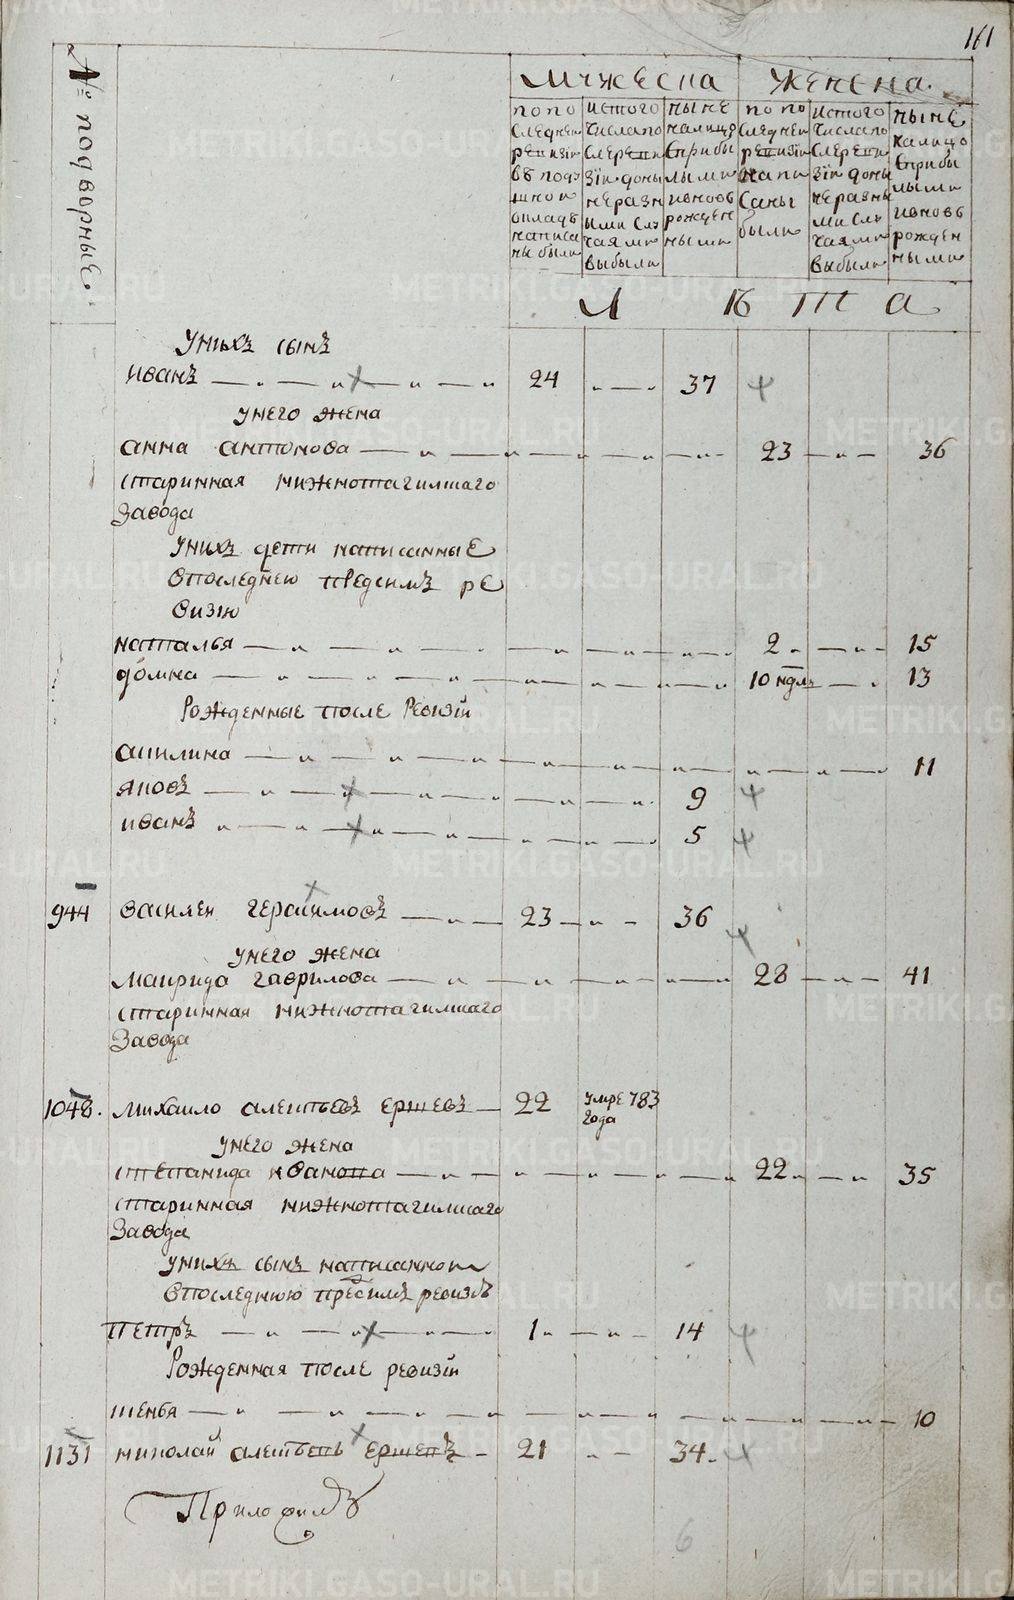 161
№ подворныε.
мужеска
женска.
по по
следней
ревизіи
въ поду
шной
окладъ
написа
ны были
истого
числапо
слереви
зіи доны
неразн
ыми слу
чаями
выбыли
ныне
налицо
сприбы
лыми
ивновь
рожден
ными
по по
следней
ревизіи
напи
саны
были
истого
числапо
слереви
зіи доны
неразны
ми слу
чаями
выбыли
ныне
налицо
сприбы
лыми
ивновь
рожден
ными
лѣта
унихъ сынъ
иванъ 24 37
унего жена
анна антонова 23 36
старинная нижнотагилскаго
завода
унихъ дети написанные
впоследнею предсимъ ре
визію
наталья 2 15
домна 10 ндль 13
Рожденные после Ревизіи
акилина 11
яковъ 9
иванъ 5
944 василей герасимовъ 23 36
унего жена
маврида гаврилова 28 41
старинная нижнотагилскаго
завода
1048. михаило алексѣевъ ершевъ 22 умре 783
года
унего жена
степанида иванова 22 35
старинная нижнотагилскаго
завода
унихъ сынъ написанной
впоследнюю предсимъ ревизѣ
петръ 1 14
Рожденная после ревизіи
1131 николай алексѣевъ ершевъ 21 34.
6
METRIKI.GASO-URAL.RU